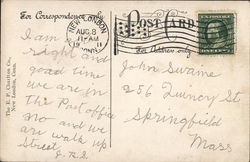 For Correspondence
POST CARD
For Address only
NEW LONDON
AUG 8
11 AM
19 11
CONN.
I am
right and
good time
we are in
the Post office
no and we
are walk up
Street
John Swaine
256 Quincy St
Springfield
Mass
The E. P. Charlton Co.,
New London, Conn.